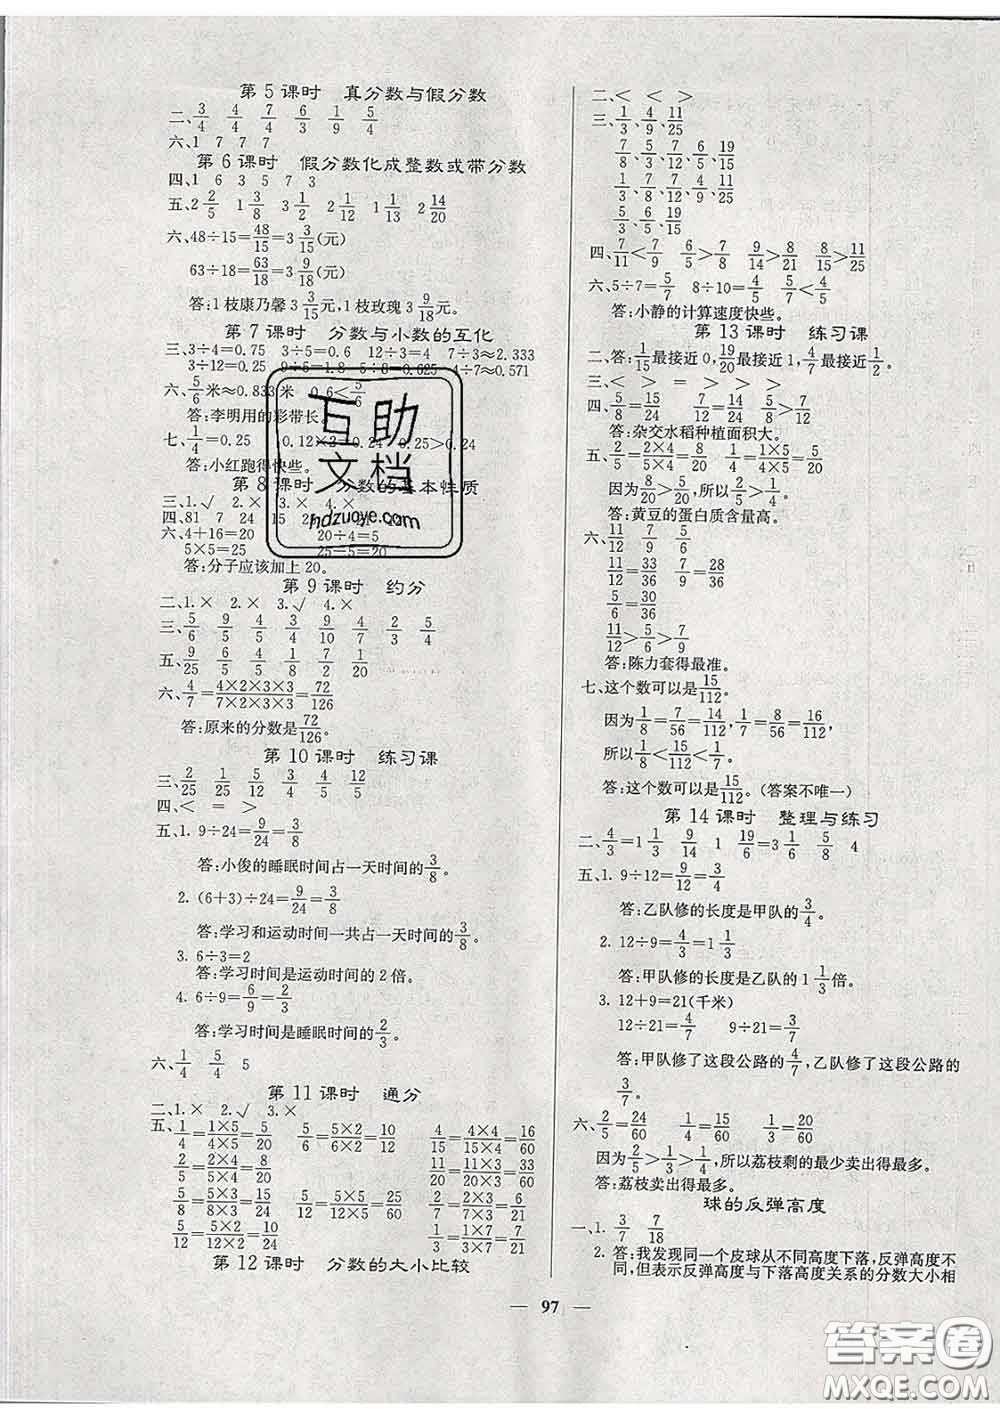 第5课时 真分数与假分数
二、3/4 4/4 7/4 6/3 1/9 5/4
六、1 7 7 7
第6课时 假分数化成整数或带分数
四、1 6 3 5 7 3
五、2 2/5 1 3/8 3 1/2 2 1/12 1 1/13 2 14/20
六、48÷15=48/15=3 3/15(元)
63÷18=63/18=3 9/18(元)
答:1枝康乃馨3 3/15元,1枝玫瑰3 9/18元。
第7课时 分数与小数的互化
三、3÷4=0.75 3÷5=0.6 12÷3=4 7÷3≈2.333
3÷12=0.25 9÷5=1.8 5÷8=0.625 4÷7≈0.571
六、5/6米≈0.833米 0.6<5/6
答:李明用的彩带长。
七、1/4=0.25 0.12×2=0.24 0.25>0.24
答:小红跑得快些。
第8课时 分数的基本性质
三、1.√ 2.× 3.×
四、81 7 24 15 21 20
六、4+16=20 20÷4=5
5×5=25 25-5=20
答:分子应该加上20。
第9课时 约分
二、1.× 2.× 3.√ 4.×
三、5/6 9/5 5/4 3/4 9/10 4/7 2/3 5/4
五、9/25 6/5 4/5 1/8 7/2 1/20
六、4/7=4×2×3×3/7×2×3×3=72/126
答:原来的分数是72/126。
第10课时 练习课
三、2/25 1/25 5/12 3/4 4/5 12/5
四、< = >
五、1. 9÷24=9/24=3/8
答:小俊的睡眠时间占一天时间的3/8。
2. (6+3)÷24=9/24=3/8
答:学习和运动时间一共占一天时间的3/8。
3. 6÷3=2
答:学习时间是运动时间的2倍。
4. 6÷9=6/9=2/3
答:学习时间是睡眠时间的2/3。
六、1/4 5/4 5
第11课时 通分
二、1.× 2.√ 3.×
五、1/4=1×5/4×5=5/20 5/6=5×2/6×2=10/12 4/15=4×4/15×4=16/60
2/5=2×4/5×4=8/20 11/20=11×3/20×3=33/60
5/8=5×3/8×3=15/24 5/12=5×5/12×5=25/60 2/7=2×3/7×3=6/21
5/12=5×2/12×2=10/24 1/3=1×7/3×7=7/21
第12课时 分数的大小比较
二、< < >
三、1/3、4/9、11/25
7/8、5/3、6/5、19/15
1/3、7/8、6/5、19/15
5/3、6/5、19/15
四、7/11<7/9 6/7>5/8 9/14>8/21 8/15>11/25
六、5÷7=5/7 8÷10=4/5 4/5>5/7
答:小静的计算速度快些。
第13课时 练习课
二、答:1/15最接近0,19/20最接近1,4/7最接近1/2。
三、< > = > > <
四、5/8=15/24 7/12=14/24 5/8>7/12
答:杂交水稻种植面积大。
五、2/5=2×4/5×4=8/20 1/4=1×5/4×5=5/20
因为8/20>5/20,所以2/5>1/4。
答:黄豆的蛋白质含量高。
六、11/12>9/12 7/9
11/12=33/36 7/9=28/36
5/6=30/36
11/12>5/6>7/9
答:陈力套得最准。
七、这个数可以是15/112。
因为1/8=7/56=14/112,1/7=8/56=16/112,
所以1/8<15/112<1/7。
答:这个数可以是15/112。(答案不唯一)
第14课时 整理与练习
二、4/3=1 1/3 9/14 1 19/6=3 1/6 5/8 4
五、1. 9÷12=9/12=3/4
答:乙队修的长度是甲队的3/4。
2. 12÷9=4/3=1 1/3
答:甲队修的长度是乙队的1 1/3倍。
3. 12+9=21(千米)
12÷21=4/7 9÷21=3/7
答:甲队修了这段公路的4/7,乙队修了这段公路的
3/7。
六、2/5=24/60 1/4=15/60 1/3=20/60
因为2/5>1/3>1/4,所以荔枝剩的最少卖出得最多。
答:荔枝卖出得最多。
球的反弹高度
一、1. 3/7 7/18
2. 答:我发现同一个皮球从不同高度下落,反弹高度不
同,但表示反弹高度与下落高度关系的分数大小相
— 97 —
互助
文档
hdzuoye.com
答案圈
MXQE.COM